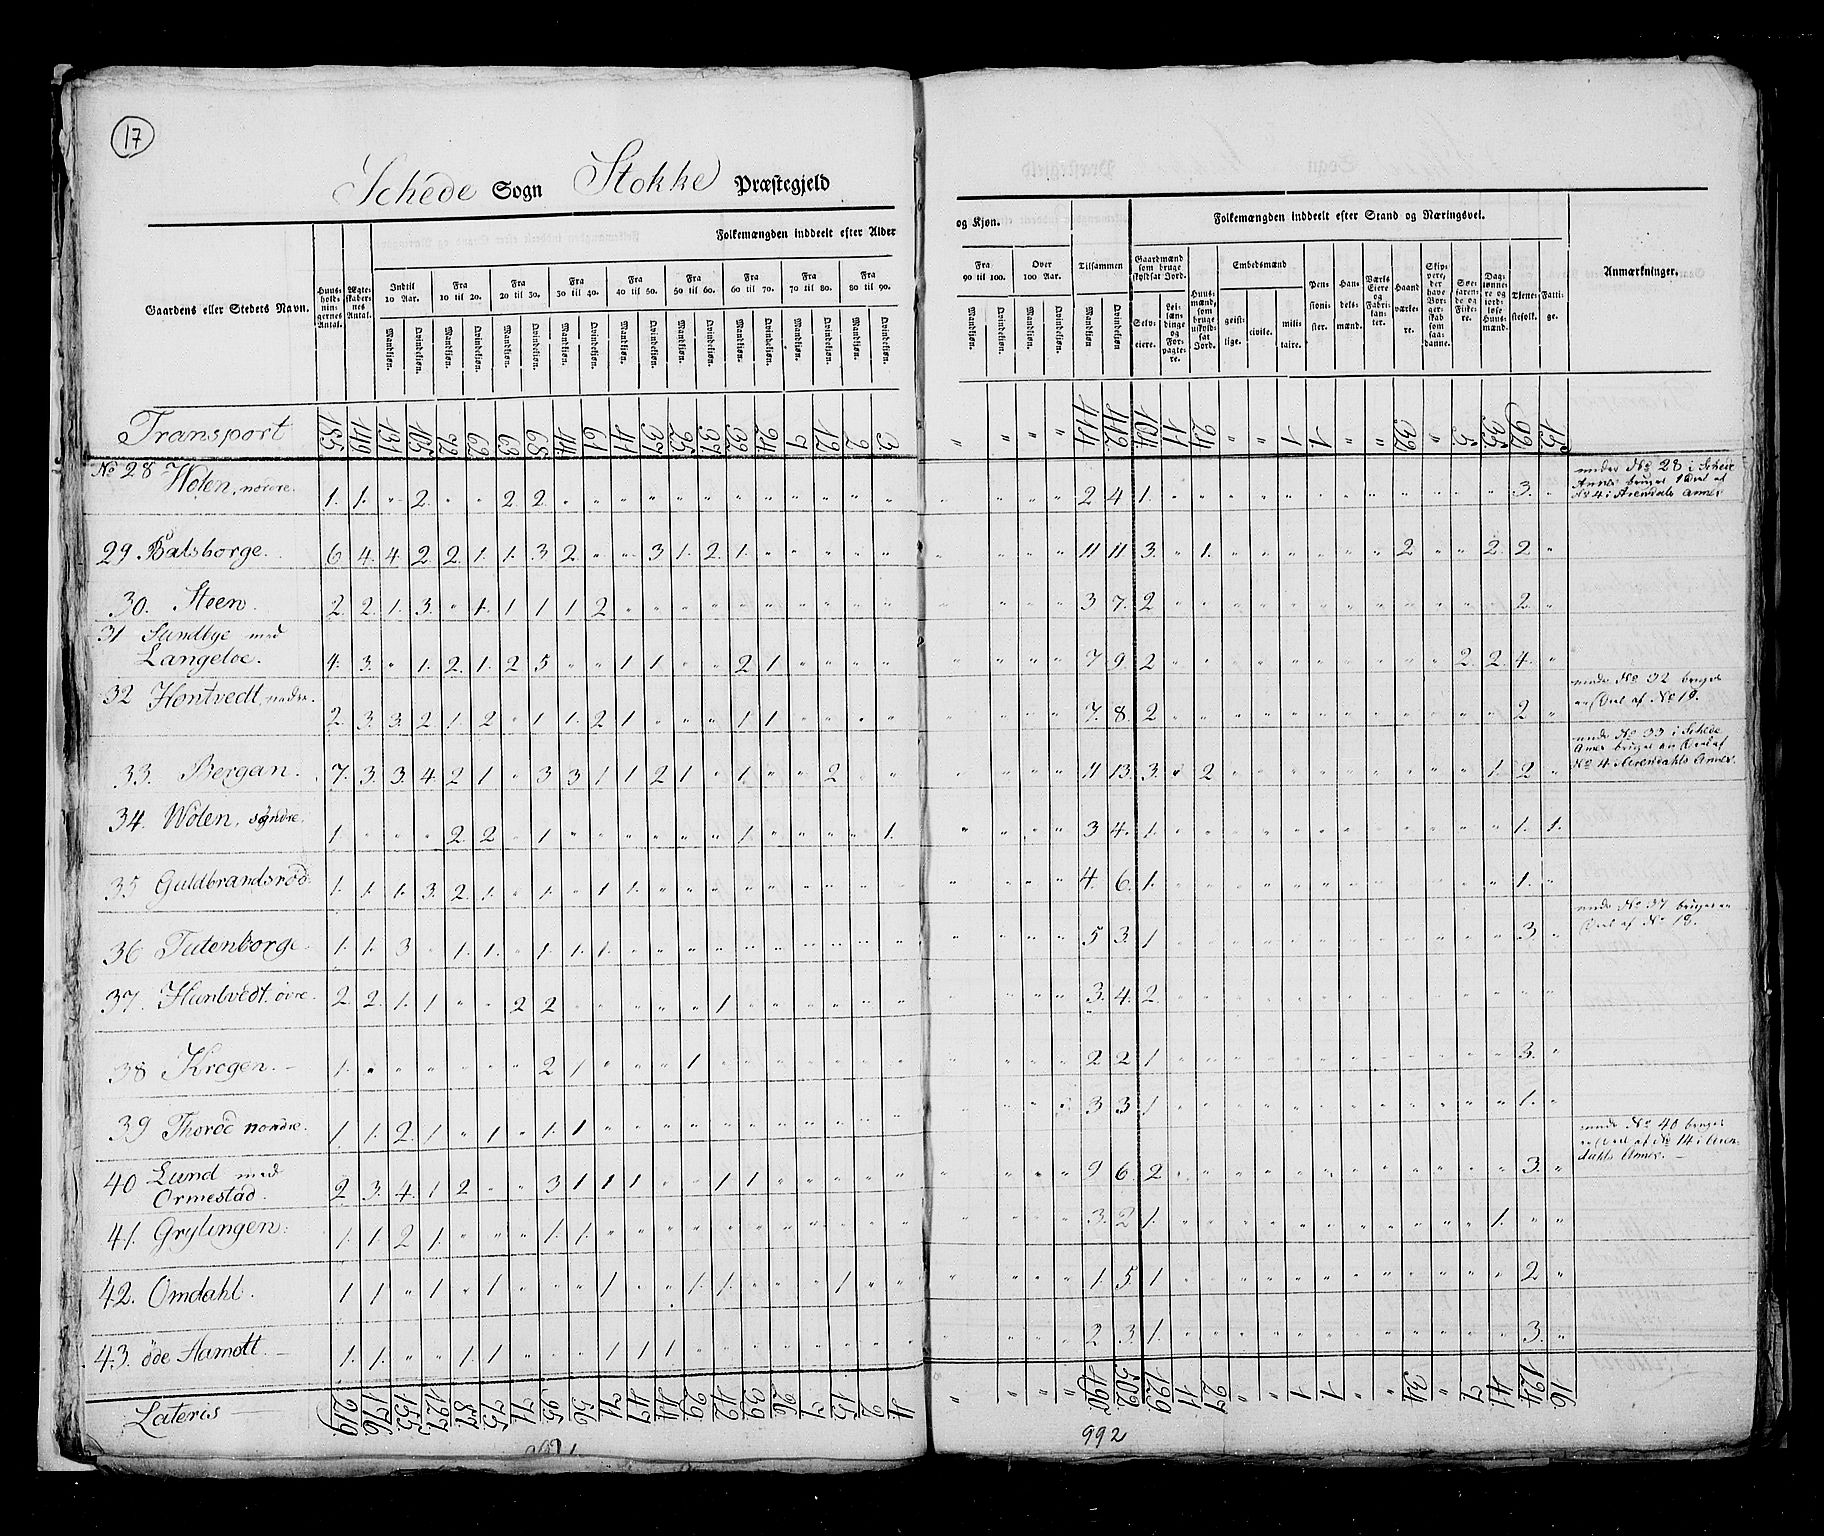 17
Schede Sogn Stokke Præstegjeld
Gaardens eller Stedets Navn.
Huus-holdningernes Antal.
Ægteskabernes Antal.
Folkemængden inddeelt efter Alder
Indtil 10 Aar. Fra 10 til 20. Fra 20 til 30. Fra 30 til 40. Fra 40 til 50. Fra 50 til 60. Fra 60 til 70. Fra 70 til 80. Fra 80 til 90.
Mandkiøn. Qvindekiøn. Mandkiøn. Qvindekiøn. Mandkiøn. Qvindekiøn. Mandkiøn. Qvindekiøn. Mandkiøn. Qvindekiøn. Mandkiøn. Qvindekiøn. Mandkiøn. Qvindekiøn. Mandkiøn. Qvindekiøn. Mandkiøn. Qvindekiøn.
og Kjøn.
Fra 90 til 100. Over 100 Aar. Tilsammen
Mandkiøn. Qvindekiøn. Mandkiøn. Qvindekiøn. Mandkiøn Qvindekiøn
Folkemængden inddeelt efter Stand og Næringsvei.
Gaardmænd som bruge skyldsat Jord.
Selveiere. Leilændinge og Forpagtere.
Huusmænd, som bruge uskyldsat Jord.
Embedsmænd
geistlige. civile. militaire.
Pensionister.
Handelsmænd.
Værks Eiere og Fabrikanter.
Haandværkere.
Skippere, der have Borgerskab som saadanne.
Søefarende og Fiskere.
Daglønnere og jordløse Huusmænd.
Tjenestefolk.
Fattige.
Anmærkninger.
Transport 185 149 131 105 72 62 63 68 44 61 41 37 25 37 32 24 7 12 2 3 " " " " 414 412 104 11 24 " " 1 1 " " 32 " 5 35 92 15
No 28 Holen, nordre. 1. 1. " 2. " " 2 2 " " " " " " " " " " " " 2 4 1. " " " " " " " " " " " " 3. " under No 28 i Schede
Annex bruges 1 Deel af
No 4 i Arendals Annex
29 Balsborge. 6 4. 4. 2. 2. 1. 1. 3 2. " " 3 1. 2. 1. " " " " " 11 11. 3. " 1. " " " " " " 2 " " 2. 2 "
30. Steen. 2 2. 1. 3. " 1. 1 1 1 2 " " " " " " " " " " 3 7. 2 " " " " " " " " " " " " 2. "
31 Sundbye med
Langeloe. 4. 3. " 1. 2. 1. 2 5 " " 1 1 " " 2 1 " " " " 7 9. 2 " " " " " " " " " " 2. 2. 4. "
32 Hontvedt, nedre. 2. 3. 3. 2 1. 2 " 1 1. 2 1 " " " 1 1 " " " " 7. 8. 2 " " " " " " " " " " " " 2 " under No 32 bruges
en Deel af No 19.
33. Bergan. 7. 3. 3. 4. 2 1 " 3 3 1 1 2 1 " 1. " " 2. " " 11 13. 3. " 2 " " " " " " " " " 1. 2 " under No 33 i Schede
Annex bruges en Deel af
No 4 Arendahls Annex.
34. Wolen, søndre. 1. " " " 2 2 " 1 " " " " " " 1. " " " " 1. 3 4. 1. " " " " " " " " " " " " 1. 1.
35 Guldbrandsrød. 1. 1. 1. 3 2. 1. " 1. " 1 1. " " " " " " " " " 4. 6. 1. " " " " " " " " " " " " 1. "
36 Tutenborge. 1. 1. 3 " 1. 1. " 1. 1. 1. " " " " " " " " " " 5 3. 1 " " " " " " " " " " " " 3. "
37. Hantvedt, øvre. 2 2. 1. 1 " " 2 2 " " " " " 1 " " " " " " 3. 4. 2. " " " " " " " " " " " " " " under No 37 bruges en
Deel af No 18.
38 Krogen. 1. " " " " " " 2 1 " " " 1 " " " " " " " 2 2 1 " " " " " " " " " " " " 3. "
39 Thorød nordre. 1. 1. 2. 1 " 1 " 1. 1 " " " " " " " " " " " 3 3 1 " " " " " " " " " " " " 1. "
40 Lund med
Ormestad. 2 3. 4. 1 2 " " 3 1 1 1 " " 1 1 " " " " " 9 6. 2 " " " " " " " " " " " " 3. " under No 40 bruges
en Deel af No 14 i Aren-
dahls Annex.
41. Grylingen. 1. 1. 2 1. " " " 1. 1. " " " " " " " " " " " 3. 2 1. " " " " " " " " " " " 1. " "
42. Omdahl. 1 1 " 1 " 1 " " " 1 " " 1. 1. " " " 1 " " 1. 5. 1 " " " " " " " " " " " " 2 "
43. øde Aamott. 1. 1. " " 1. 1 " " " 1 1 1 " " " " " " " " 2 3. 1. " " " " " " " " " " " " 3. "
Lateris 219 176 155 127 87 75 71 95 56 71 47 44 29 42 39 26 7 15 2 4. " " " " 490 502 129 11 27 " " 1 1 " " 34 " 7 41 124 16
992